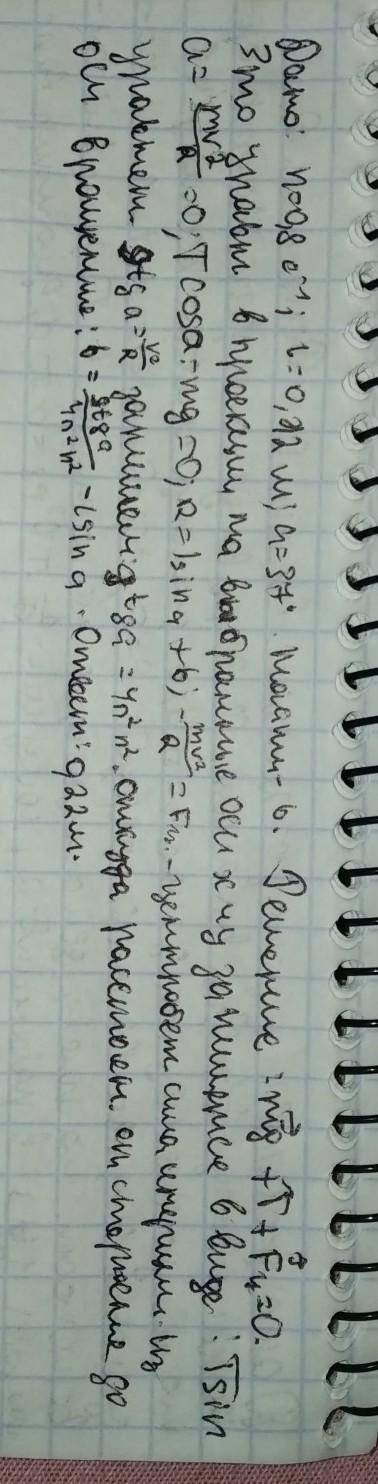 Дано: n=0,8 с⁻¹; l=0,22 м; a=37°. Найти - b. Решение: mg + T + Fц=0.
Это уравн в проекции на выбранные оси x и y запишется в виде: T sin
a= mv²/R =0; T cosa - mg=0; R=lsin a + b; - mv²/R = Fц. - центробеж сила инерции. Из
g tg a = v²/R запишем: g tg a = 4п²n². откуда расстоян. от стержня до
оси вращения: b = g tg a / 4п²n² - l sin a. Ответ: 0,22м.